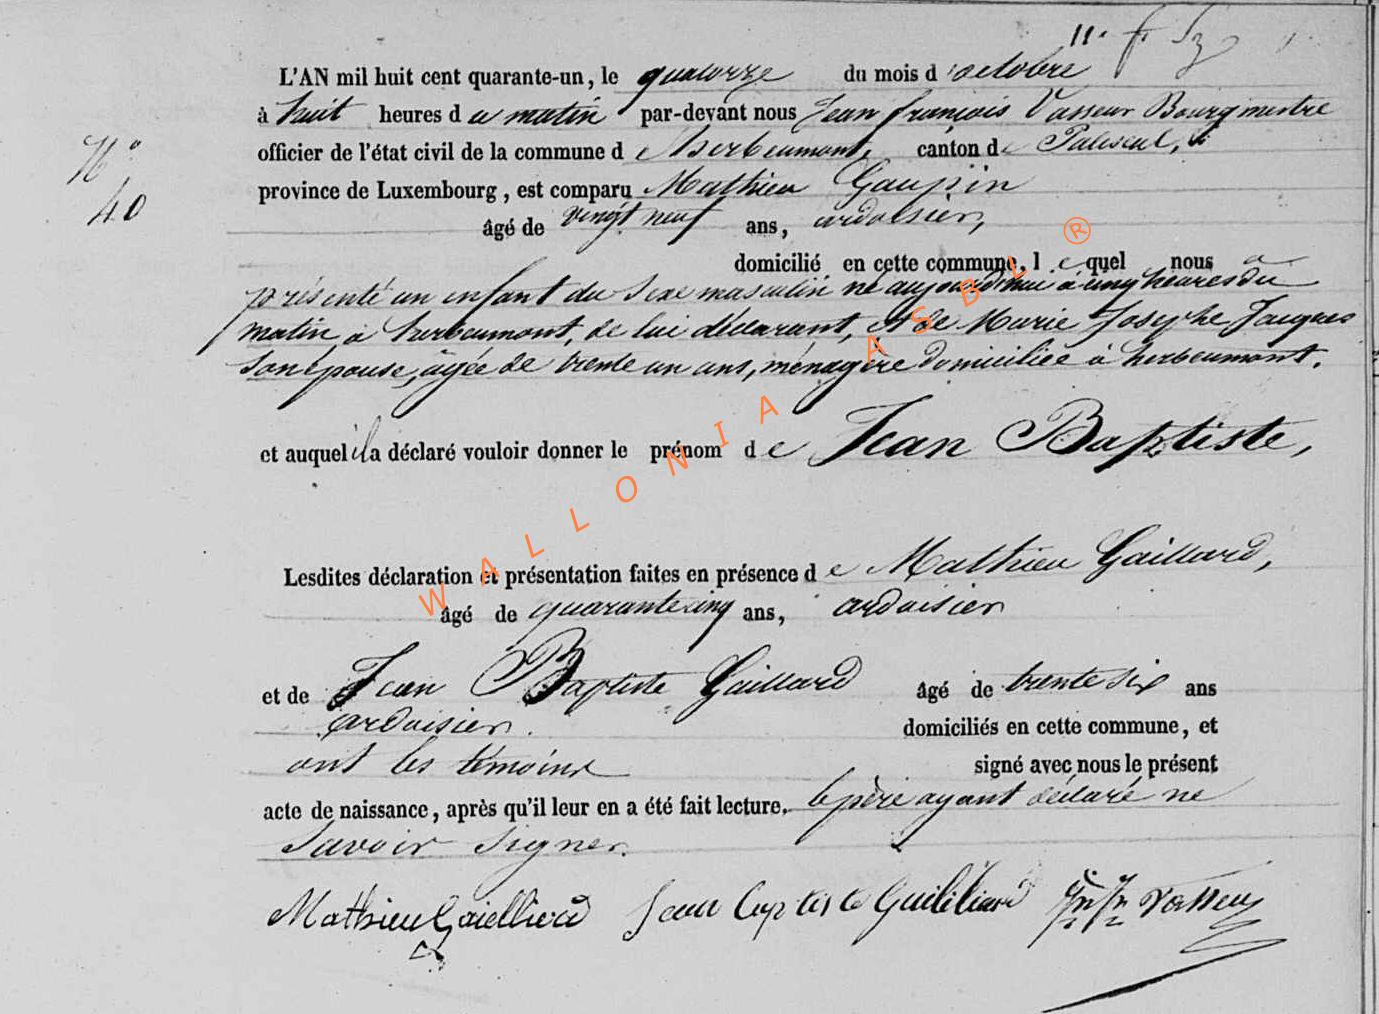 L'AN mil huit cent quarante-un, le quatorze du mois d'octobre
à huit heures du matin par-devant nous Jean françois Vasseur Bourgmestre
officier de l'état civil de la commune de herbeumont, canton de Paliseul,
N° 40
province de Luxembourg, est comparu Mathieu Gaupin
âgé de vingt neuf ans, ardoisier,
domicilié en cette commune, lequel nous a
présenté un enfant du sexe masculin né aujourd'hui à cinq heures du
matin à herbeumont, de lui déclarant, et de Marie Josephe Jacques
son épouse, âgée de trente un ans, ménagère domiciliée à herbeumont.
et auquel il a déclaré vouloir donner le prénom de Jean Baptiste,
Lesdites déclaration et présentation faites en présence de Mathieu Gaillard,
âgé de quarante cinq ans, ardoisier
et de Jean Baptiste Gaillard âgé de trente six ans
ardoisier. domiciliés en cette commune, et
ont les témoins signé avec nous le présent
acte de naissance, après qu'il leur en a été fait lecture. le père ayant déclaré ne
savoir signer.
Mathieu Gaielliard Jean baptiste Vasseur
WALLONIA ASBL ®